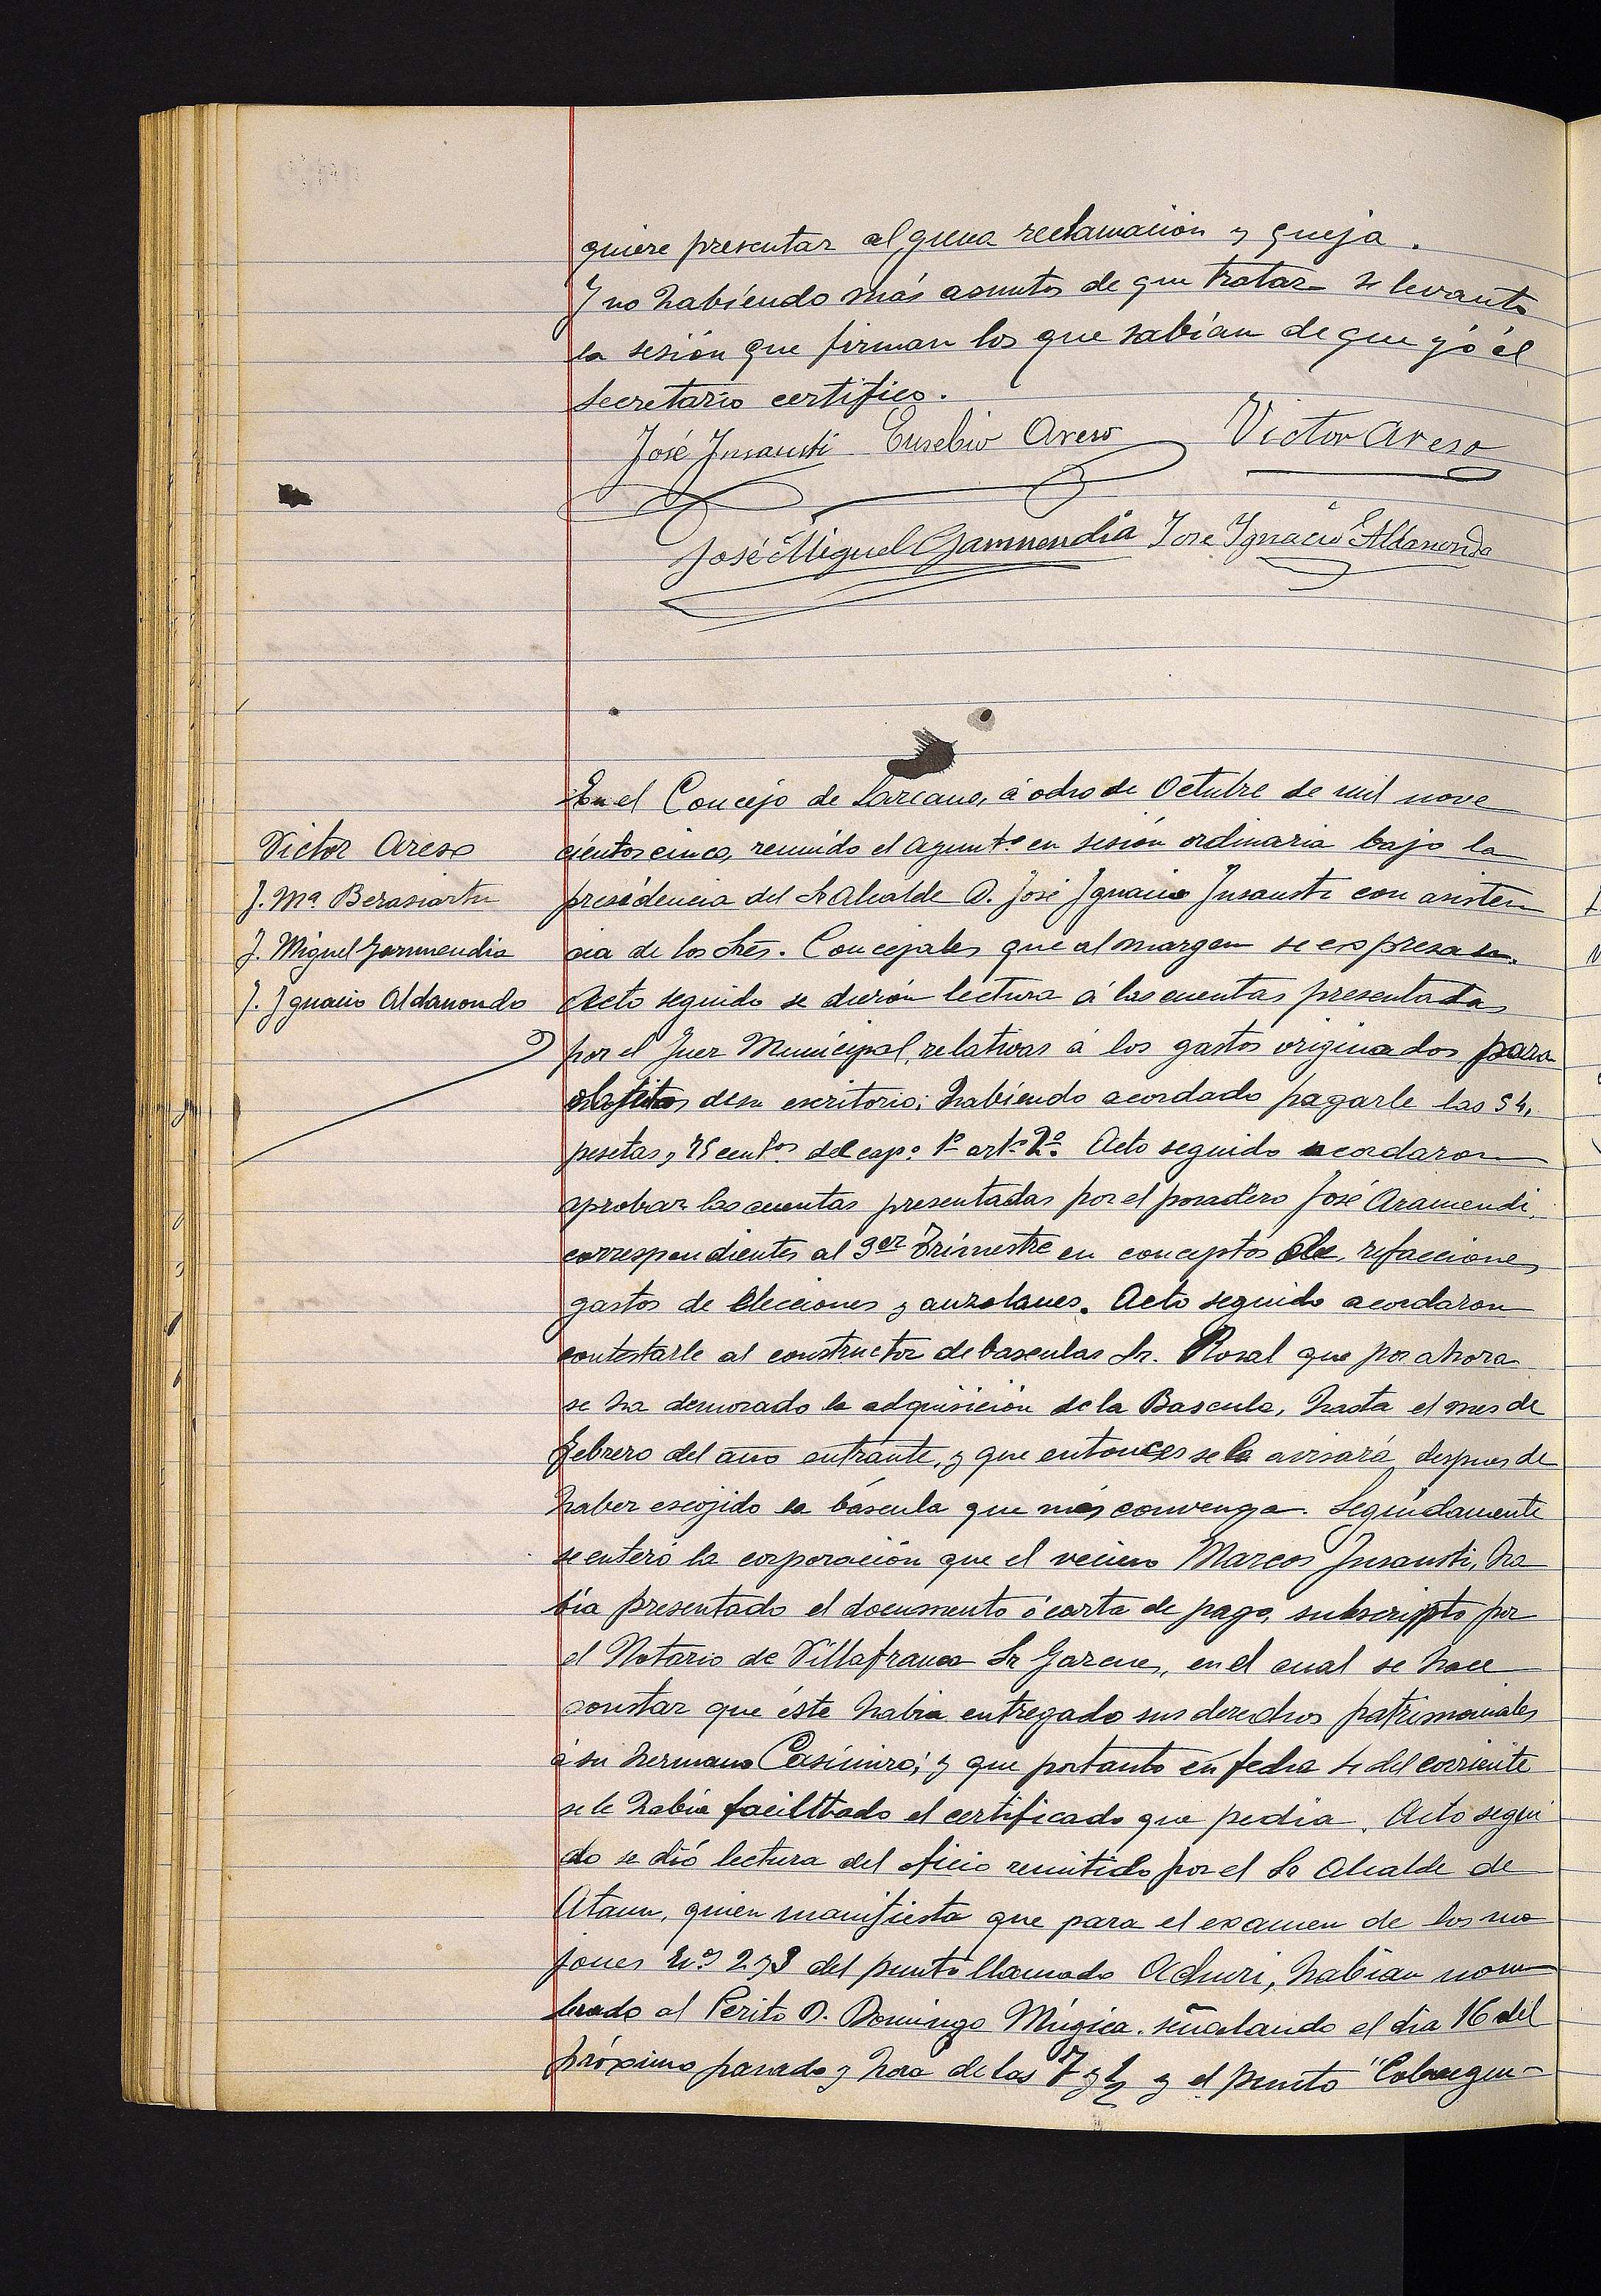 quiere presentar alguna reclamación y queja.
Y no habiendo más asuntos de que tratar se levanto
la sesión que firman los que sabían de que yó él
Secretario certifico.
José Insausti Eusebio Areso Victor Areso
José Miguel Garmendia Jose Ygnacio Aldanondo
En el Concejo de Lazcano, á ocho de Octubre de mil nove
Victor Areso
cientos cinco, reunido el Ayuntº en sesión ordinaria bajo la
J. Mª Berasiartu
presidencia del Sr Alcalde D. José Ygnacio Insausti con asisten
J. Miguel Garmendia
cia de los Srés. Concejales que al margen se expresan.
J. Ygnacio Aldanondo
Acto seguido se dierón lectura á las cuentas presentadas
por el Juez Municipal, relativas á los gastos originados para
de su escritorio; habiendo acordado pagarle las 54,
pesetas, 75 centos del capº 1º artº 2º. Acto seguido acordaron
aprobar las cuentas presentadas por el posadero José Aramendi,
correspondientes al 3er Trimestre en conceptos de, refacciones,
gastos de Elecciones y auzolanes. Acto seguido acordaron
contestarle al constructor de basculas Sr. Rosal que por ahora
se ha demorado la adquisición de la Bascula, hasta el mes de
Febrero del año entrante, y que entonces se le avisará despues de
haber escojido la báscula que más convenga. Seguidamente
se enteró la corporación que el vecino Marcos Insausti, ha
bía presentado el documento ó carta de pago, subscripto por
el Notario de Villafranca Sr , en el cual se hace
constar que éste habia entregado sus derechos patrimoniales
á su hermano Casimiro; y que portanto en fecha 4 del corriente
se le habia facilitado el certificado que pedia. Acto segui
do se dió lectura del oficio remitido por el Sr Alcalde de
Ataun, quien manifiesta que para el examen de los mo
jones nos 2 y 3 del punto llamado Aduri, habian nom
brado al Perito D. Domingo Múgica, señalando el dia 16 del
próximo pasado y hora de las 7 y ½ y el punto